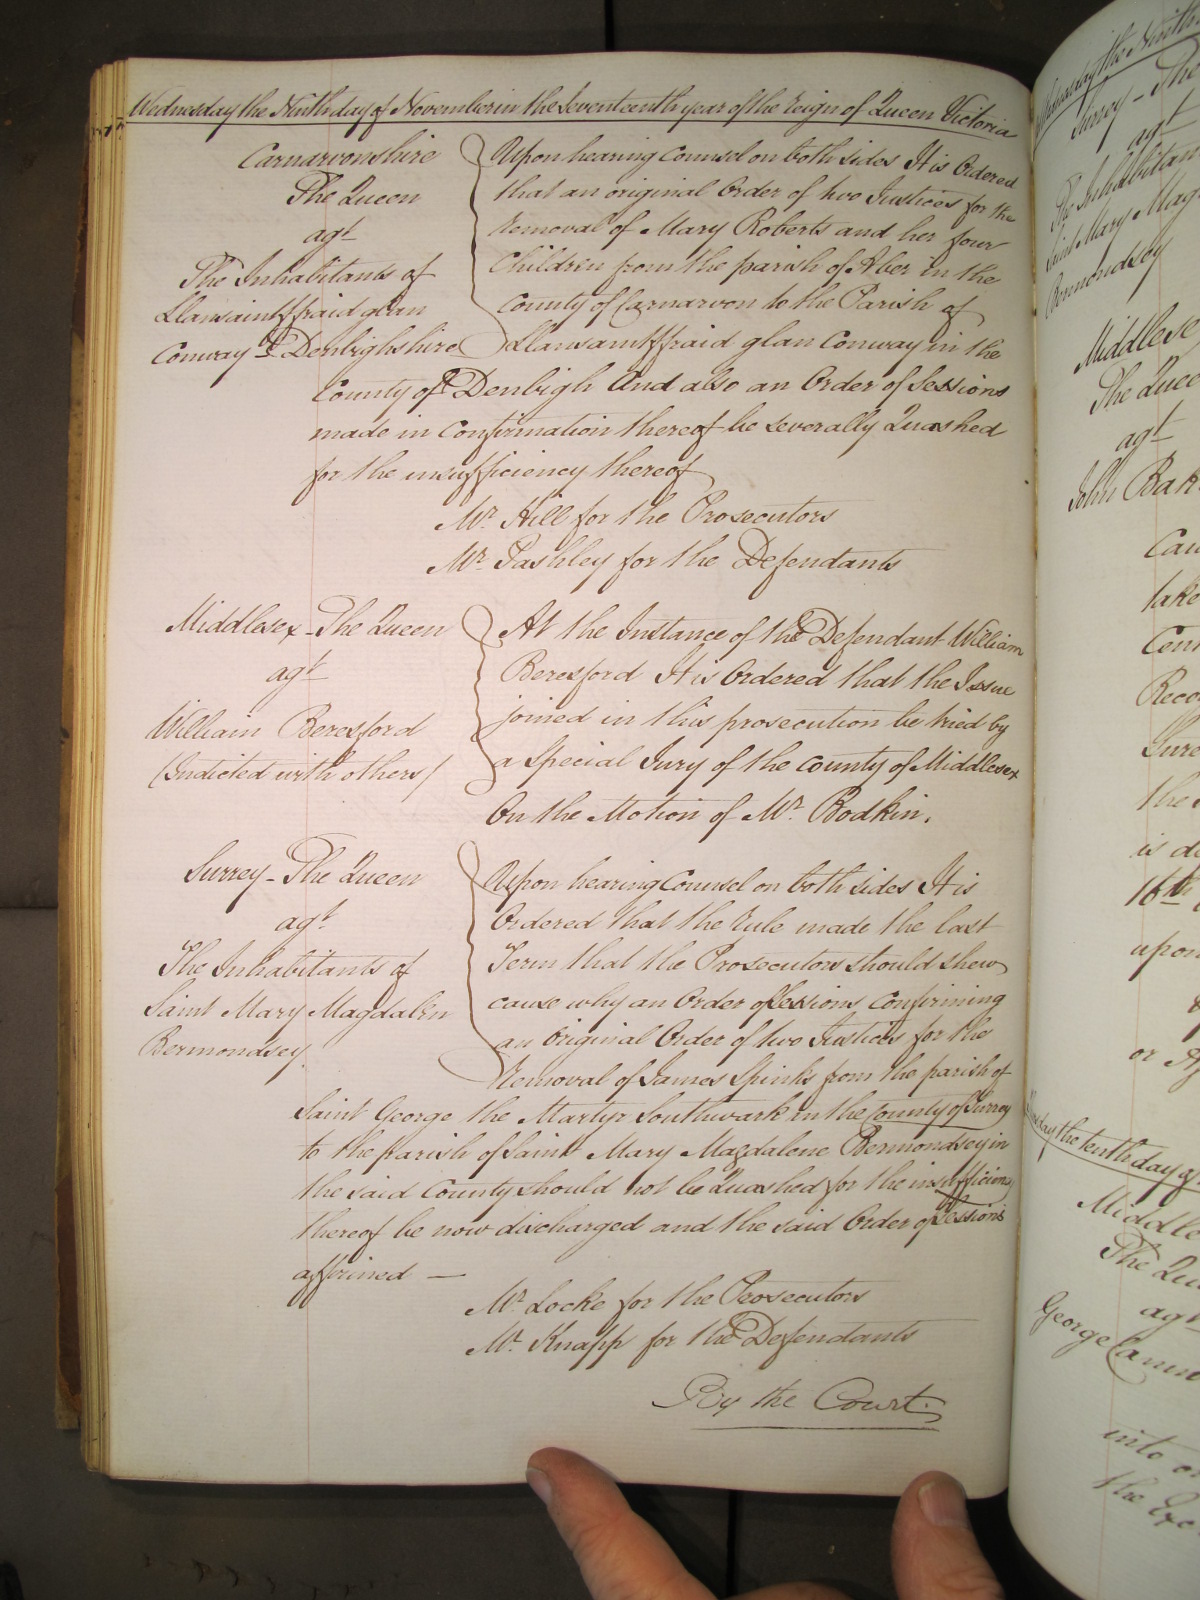 Wednesday the Ninth day of November in the Seventeenth year of the Reign of Queen Victoria
Carnarvonshire
The Queen
agt
The Inhabitants of
Llansaintffraid glan
Conway Denbighshire
Upon hearing Counsel on both sides It is Ordered
that an original Order of two Justices for the
removal of Mary Roberts and her four
Children from the parish of Aber in the
County of Carnarvon to the Parish of
Llansaintffraid glan Conway in the
County of Denbigh And also an Order of Sessions
made in Confirmation thereof be severally Quashed
for the insufficiency thereof
Mr. Hill for the Prosecutors
Mr. Pashley for the Defendants
Middlesex - The Queen
agt
William Beresford
(Indicted with others)
At the Instance of the Defendant William
Beresford It is Ordered that the Issue
joined in this prosecution be tried by
a Special Jury of the County of Middlesex
On the Motion of Mr. Bodkin.
Surrey - The Queen
agt.
The Inhabitants of
Saint Mary Magdalen
Bermondsey
Upon hearing Counsel on both sides It is
Ordered that the Rule made the last
Term that the Prosecutors should shew
cause why an Order of Sessions Confirming
an Original Order of two Justices for the
Removal of James Spinks from the parish of
Saint George the Martyr Southwark in the County of Surrey
to the parish of Saint Mary Magdalene Bermondsey in
the said County should not be Quashed for the insufficiency
thereof be now discharged and the said Order of Sessions
affirmed —
Mr. Locke for the Prosecutors
Mr. Knapp for the Defendants
By the Court.
Wednesday the Ninth
Surrey - The
agt
The Inhabitan
Saint Mary Mag
Bermondsey
Middlese
The Quee
agt
John Bak
take
Reco
the
is d
16th
upon
or
the tenth day of
Middle
The Qu
agt
George
into
the